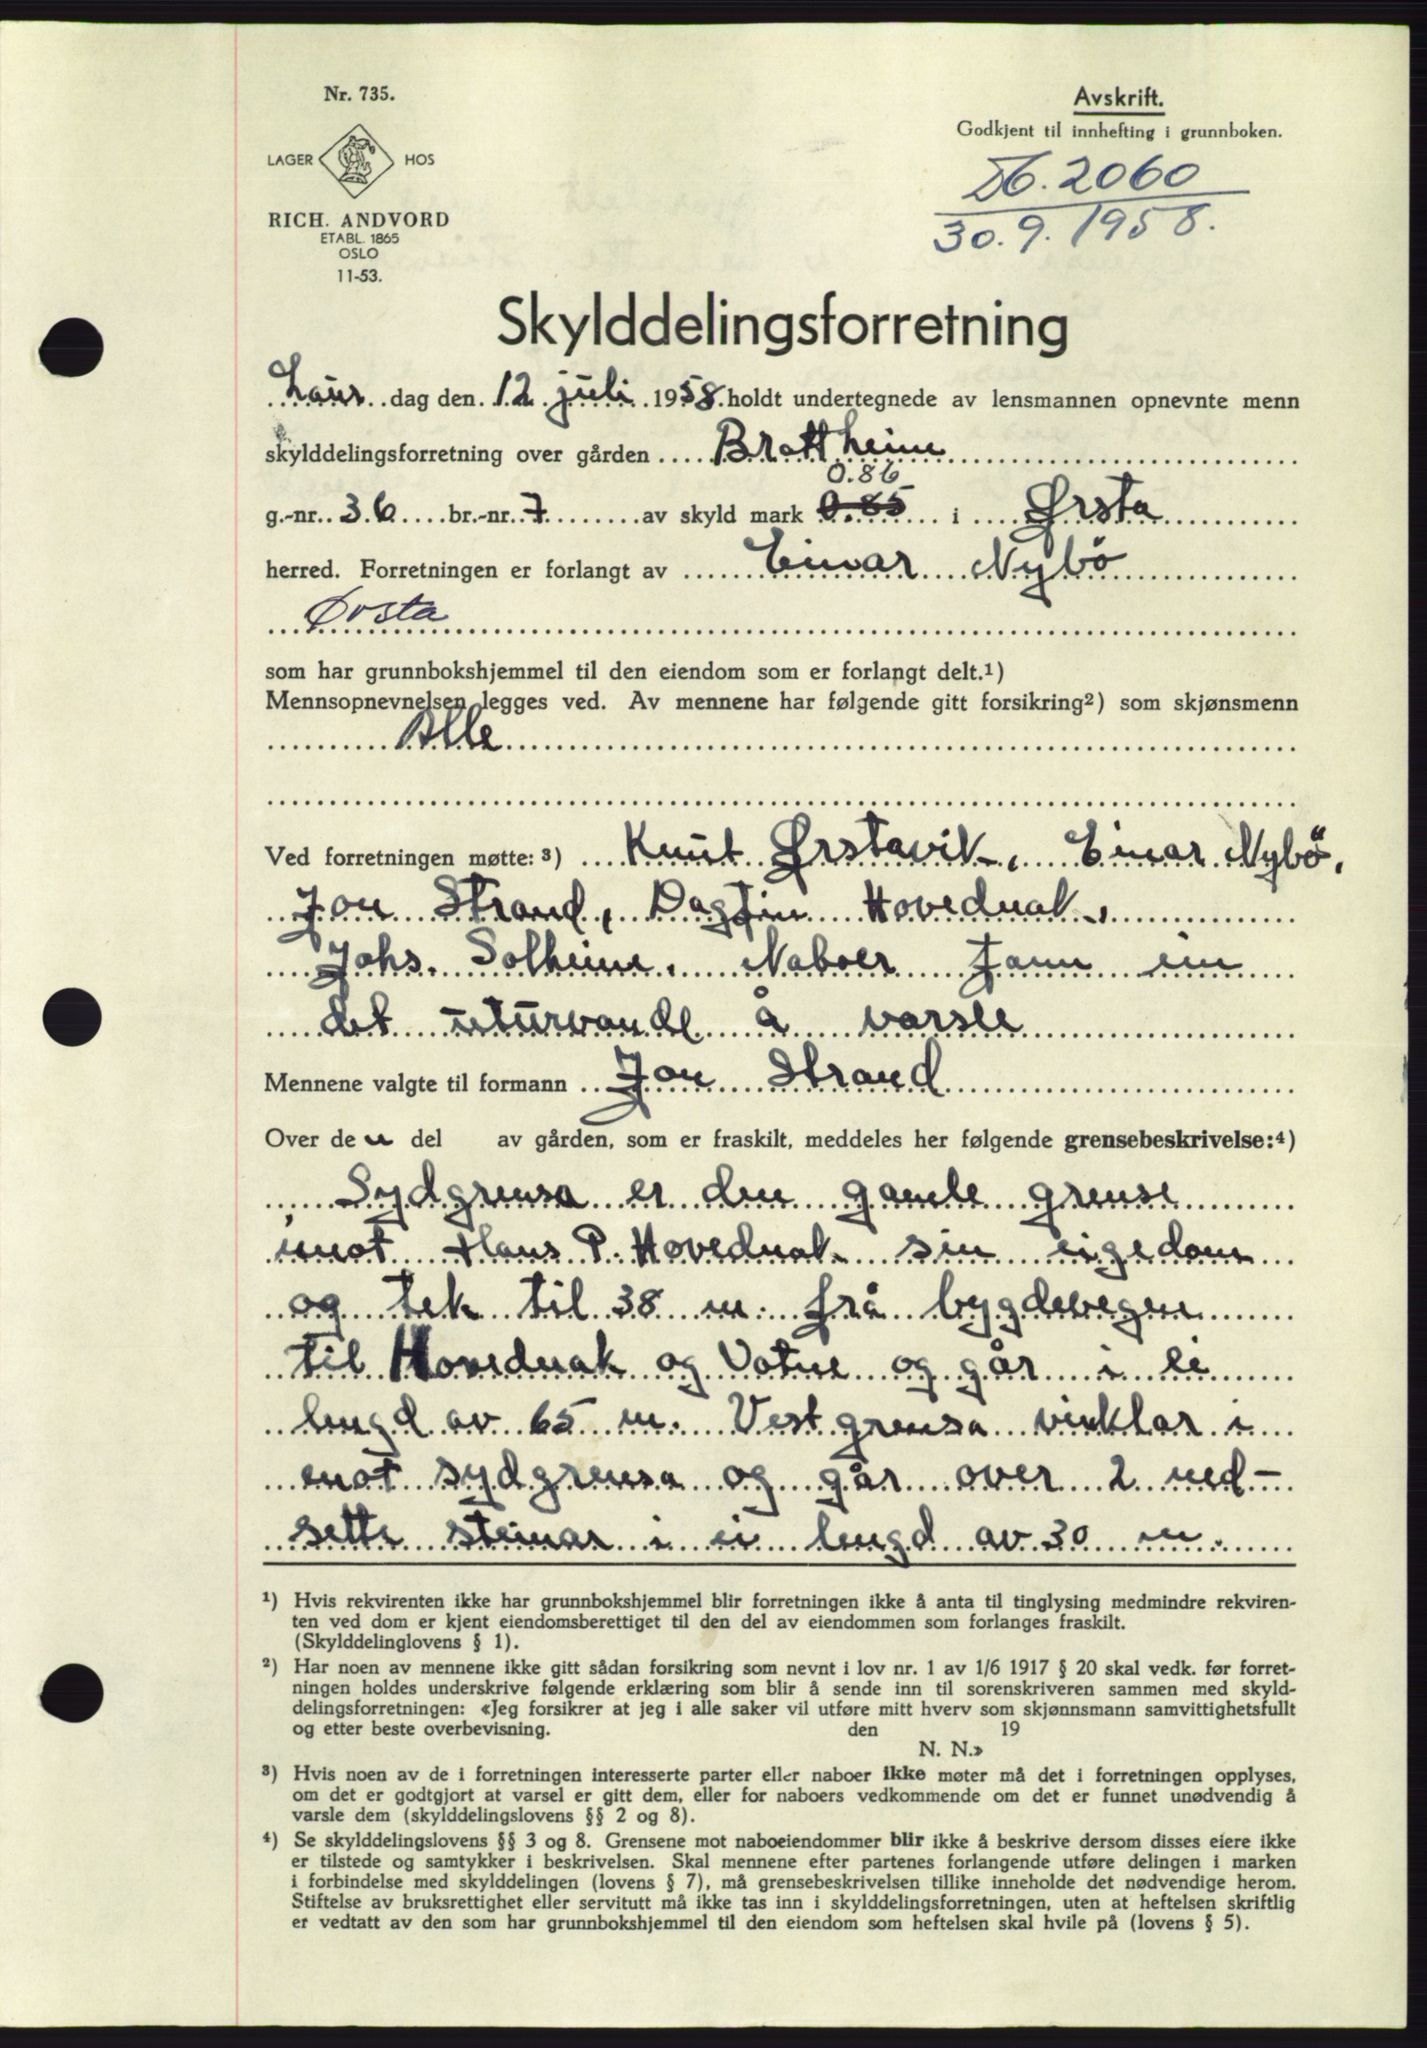 Nr. 735.
LAGER HOS
RICH. ANDVORD
ETABL. 1865
OSLO
11-53.
Avskrift.
Godkjent til innhefting i grunnboken.
Db. 2060
30.9.1958.
Skylddelingsforretning
Laur dag den 12 juli 1958 holdt undertegnede av lensmannen opnevnte menn
skylddelingsforretning over gården Brattheim
0.86
g.-nr. 36 br.-nr. 7 av skyld mark 0.85 i Ørsta
herred. Forretningen er forlangt av Einar Nybö
Ørsta
som har grunnbokshjemmel til den eiendom som er forlangt delt.¹)
Mennsopnevnelsen legges ved. Av mennene har følgende gitt forsikring²) som skjønsmenn
Alle
Ved forretningen møtte: ³) Knut Ørstavik, Einar Nybö,
Jon Strand, Dagfin Hovednak,
Johs. Solheim. Naboer fann ein
det uturvande å varsle
Mennene valgte til formann Jon Strand
Over den del av gården, som er fraskilt, meddeles her følgende grensebeskrivelse:⁴)
Sydgrensa er den gamle grense
imot Hans P. Hovednak sin eigedom
og tek til 38 m. frå bygdevegen
til Hovednak og Vatne og går i ei
lengd av 65 m. Vestgrensa vinklar i
mot sydgrensa og går over 2 ned-
sette steinar i ei lengd av 30 m.
¹) Hvis rekvirenten ikke har grunnbokshjemmel blir forretningen ikke å anta til tinglysing medmindre rekviren-
ten ved dom er kjent eiendomsberettiget til den del av eiendommen som forlanges fraskilt.
(Skylddelinglovens § 1).
²) Har noen av mennene ikke gitt sådan forsikring som nevnt i lov nr. 1 av 1/6 1917 § 20 skal vedk. før forret-
ningen holdes underskrive følgende erklæring som blir å sende inn til sorenskriveren sammen med skyld-
delingsforretningen: «Jeg forsikrer at jeg i alle saker vil utføre mitt hverv som skjønnsmann samvittighetsfullt
og etter beste overbevisning. den 19
N. N.»
³) Hvis noen av de i forretningen interesserte parter eller naboer ikke møter må det i forretningen opplyses,
om det er godtgjort at varsel er gitt dem, eller for naboers vedkommende om det er funnet unødvendig å
varsle dem (skylddelingslovens §§ 2 og 8).
⁴) Se skylddelingslovens §§ 3 og 8. Grensene mot naboeiendommer blir ikke å beskrive dersom disses eiere ikke
er tilstede og samtykker i beskrivelsen. Skal mennene efter partenes forlangende utføre delingen i marken
i forbindelse med skylddelingen (lovens § 7), må grensebeskrivelsen tillike inneholde det nødvendige herom.
Stiftelse av bruksrettighet eller servitutt må ikke tas inn i skylddelingsforretningen, uten at heftelsen skriftlig
er vedtatt av den som har grunnbokshjemmel til den eiendom som heftelsen skal hvile på (lovens § 5).